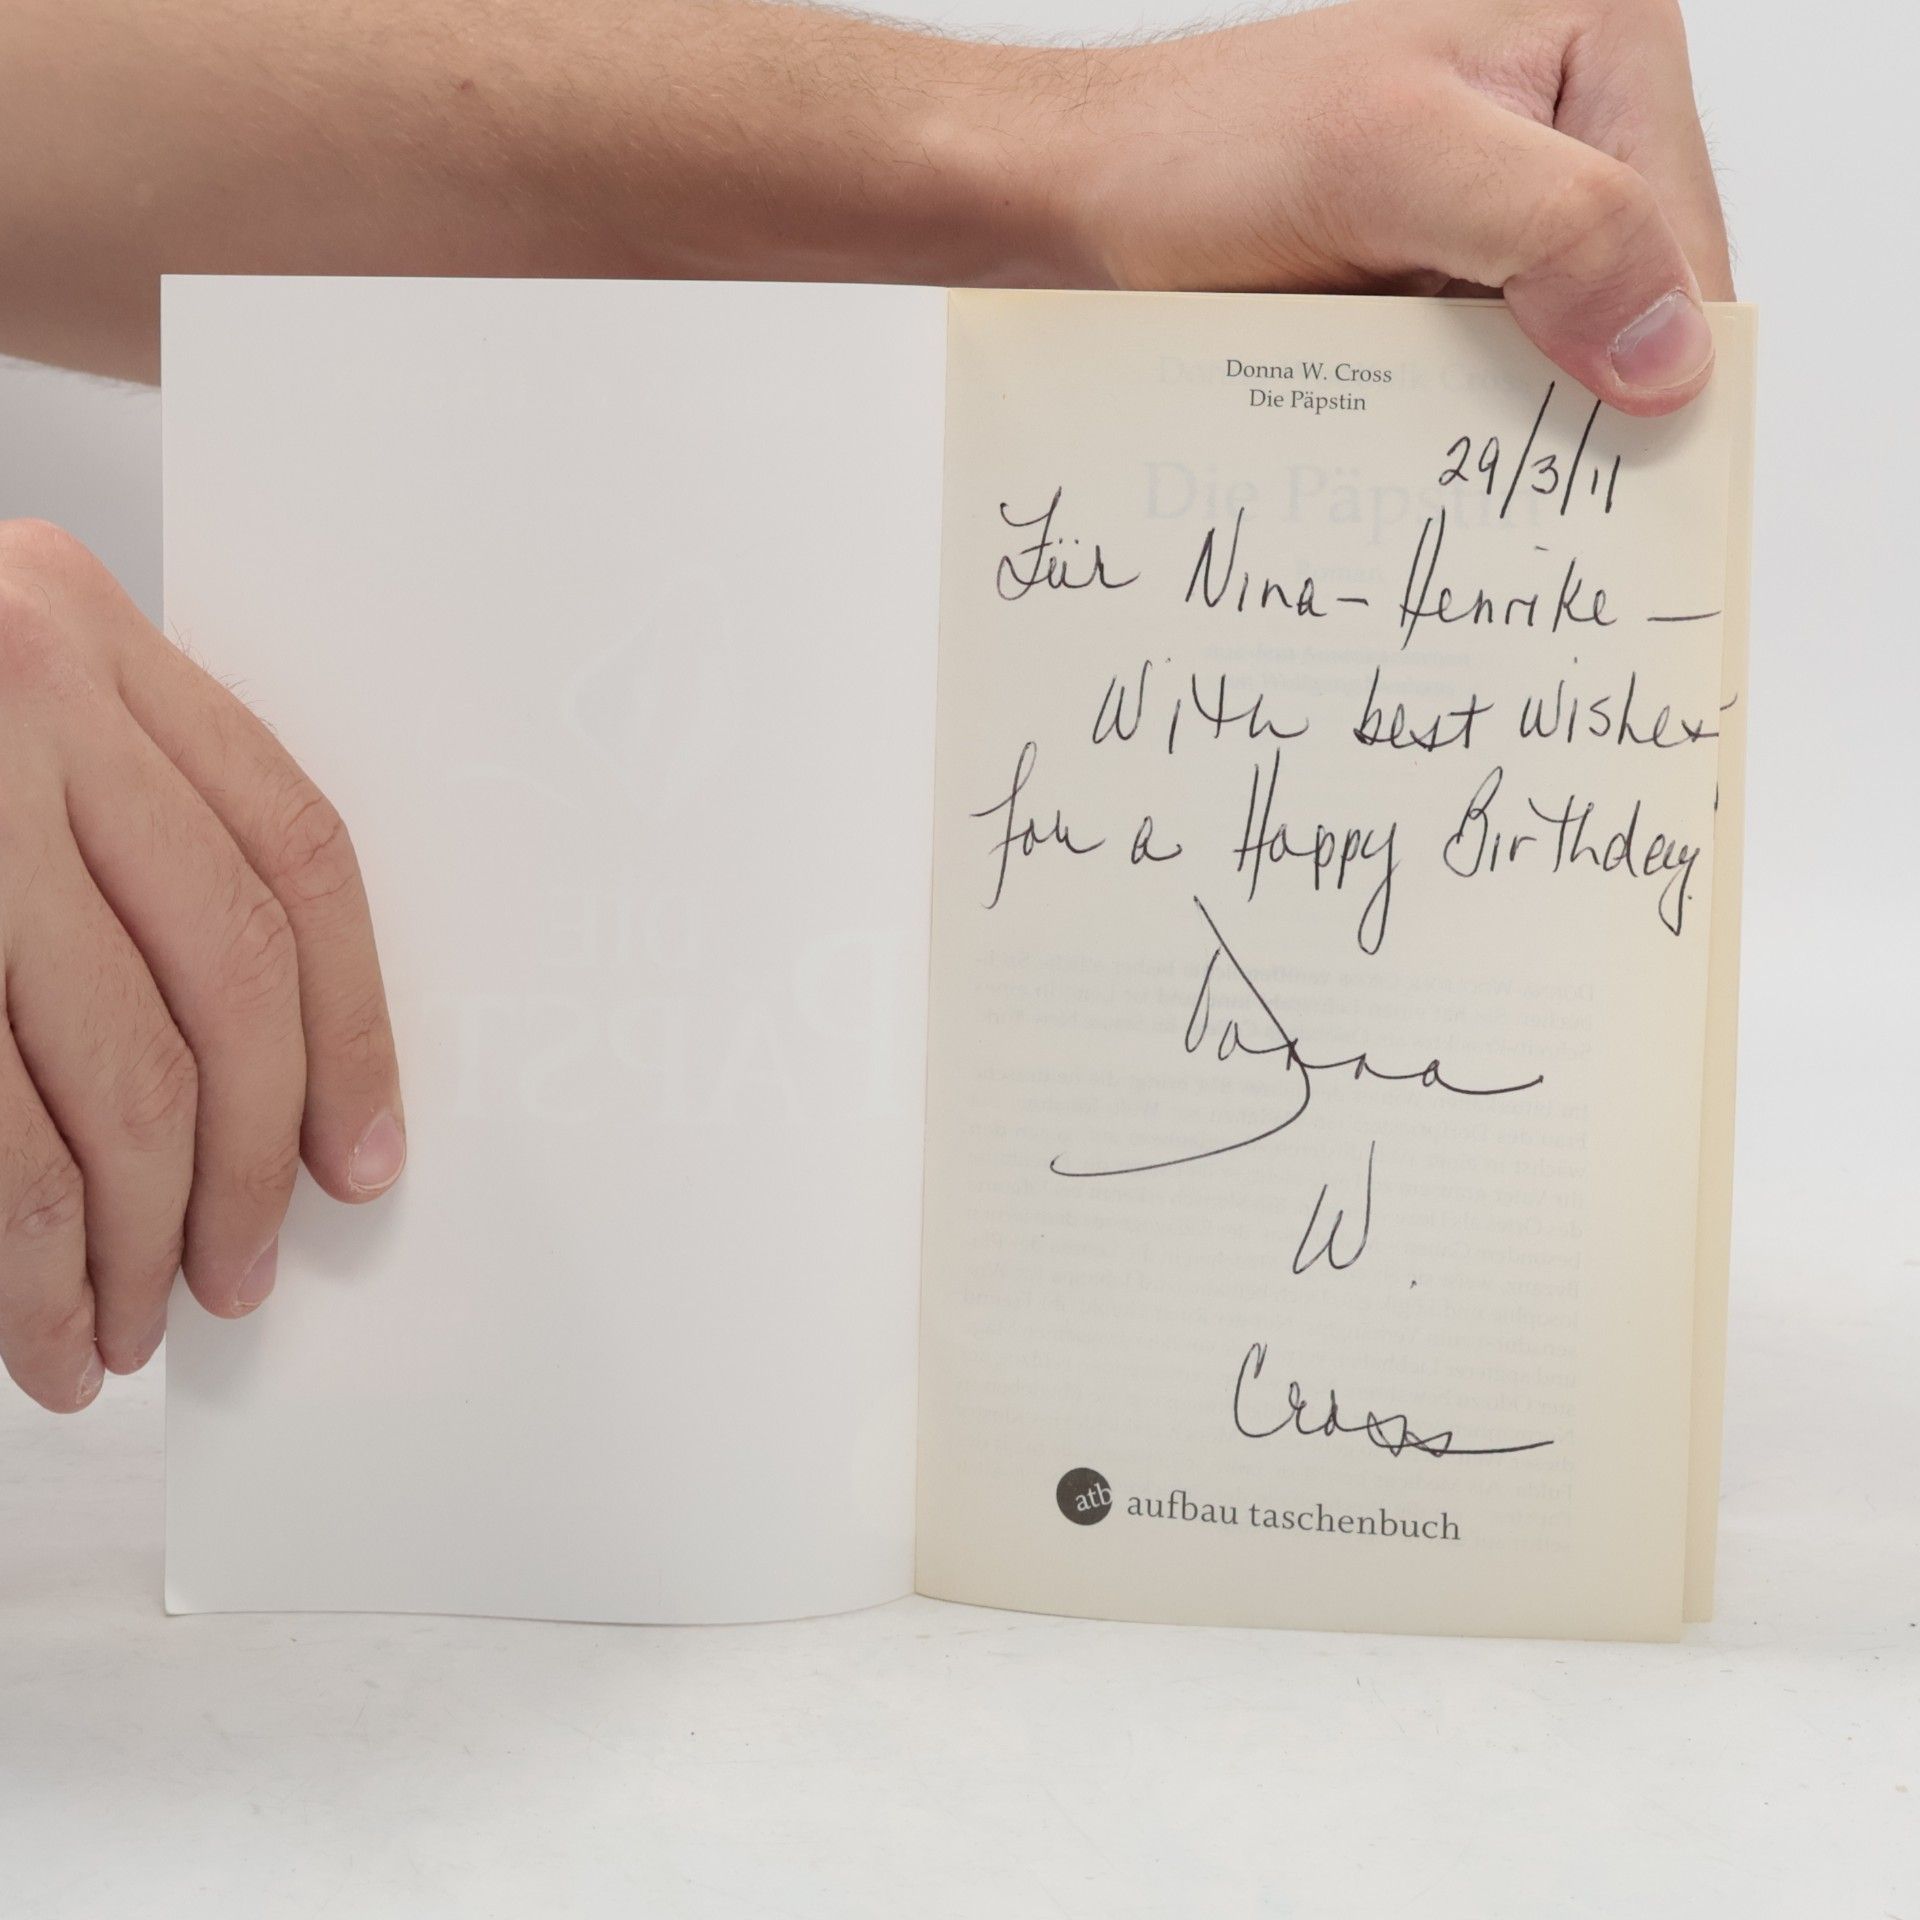 Donna W. Cross
Die Päpstin
29/3/11
Für Nina-Henrike —
With best wishes
for a Happy Birthday!
Donna
W.
Cross
atb aufbau taschenbuch
Die Päpstin
Roman